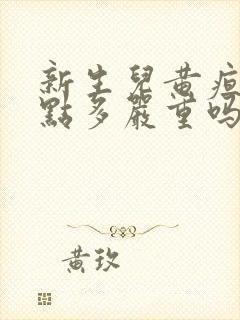 新生兒黃疸
點多嚴重吗
黃玫